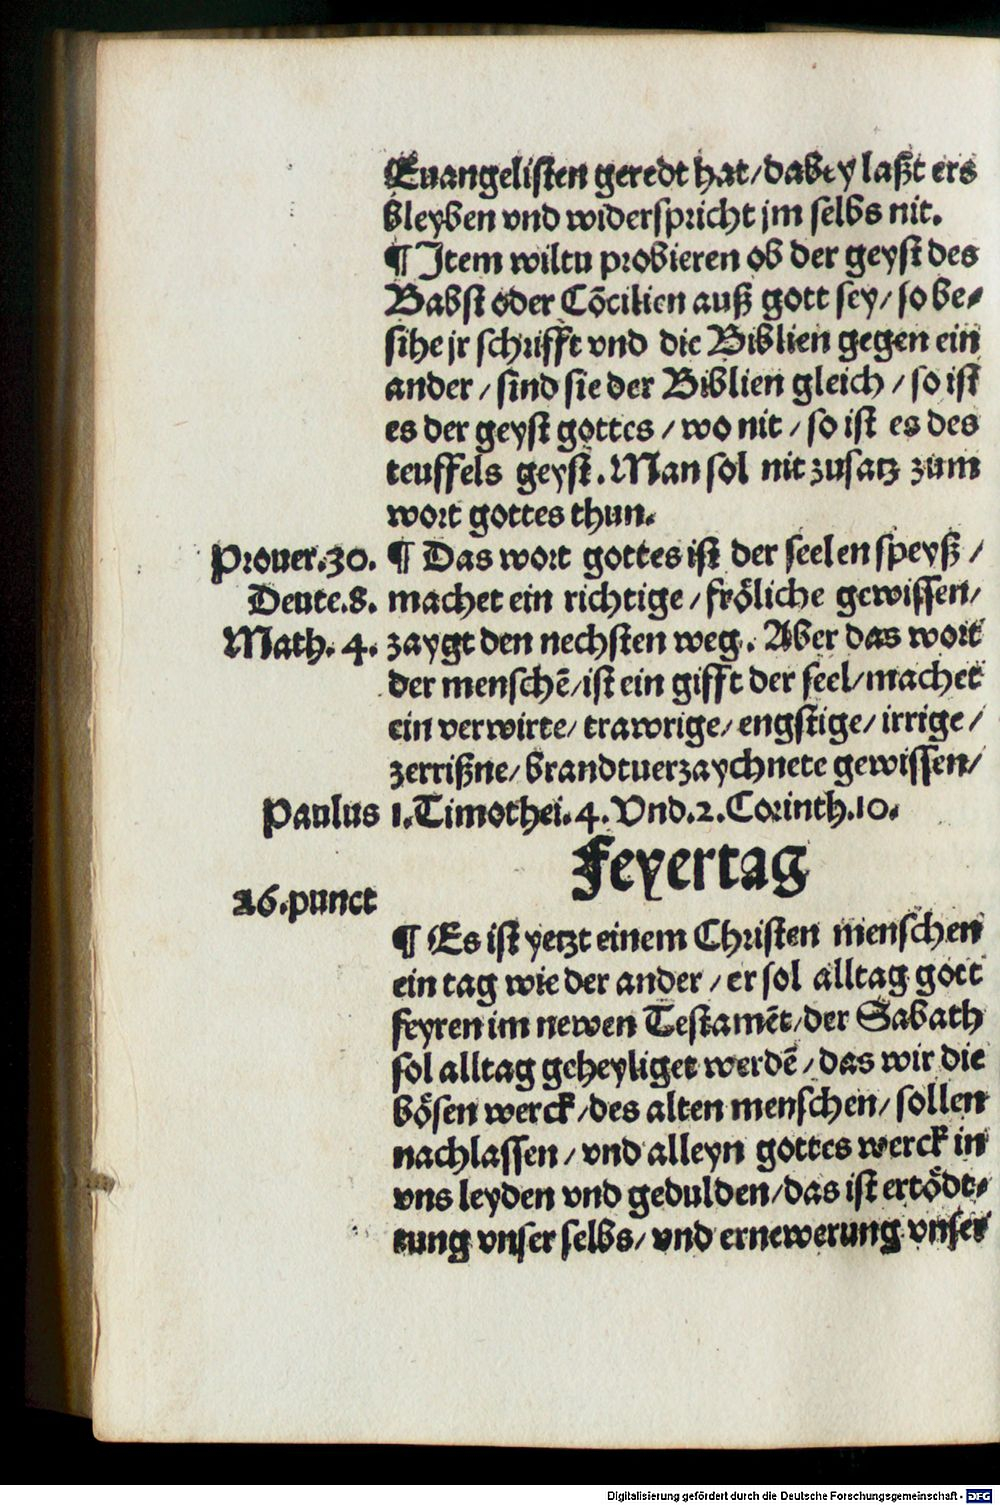 Euangelisten geredt hat/dabey laßt ers
bleyben vnd widerspricht jm selbs nit.
¶ Item wiltu probieren ob der geyst des
Babst oder Cõcilien auß gott sey/ so be⸗
sihe jr schrifft vnd die Biblien gegen ein
ander/ sind sie der Biblien gleich/ so ist
es der geyst gottes/ wo nit/ so ist es des
teuffels geyst. Man sol nit zusatz zum
wort gottes thun.
Prouer.30. ¶ Das wort gottes ist der seelen speyß/
Deute.8. machet ein richtige/ fröliche gewissen/
Math. 4. zaygt den nechsten weg. Aber das wort
der menschẽ/ist ein gifft der seel/machet
ein verwirte/ trawrige/ engstige/ irrige/
zerrißne/ brandtuerzaychnete gewissen/
Paulus 1.Timothei.4. Vnd.2.Corinth.10.
Feyertag
26.punct
¶ Es ist yetzt einem Christen menschen
ein tag wie der ander/ er sol alltag gott
feyren im newen Testamẽt/der Sabath
sol alltag geheyliget werdẽ/ das wir die
bösen werck/des alten menschen/ sollen
nachlassen/ vnd alleyn gottes werck in
vns leyden vnd gedulden/das ist ertödt⸗
tung vnser selbs/ vnd ernewerung vnser
Digitalisierung gefördert durch die Deutsche Forschungsgemeinschaft - DFG